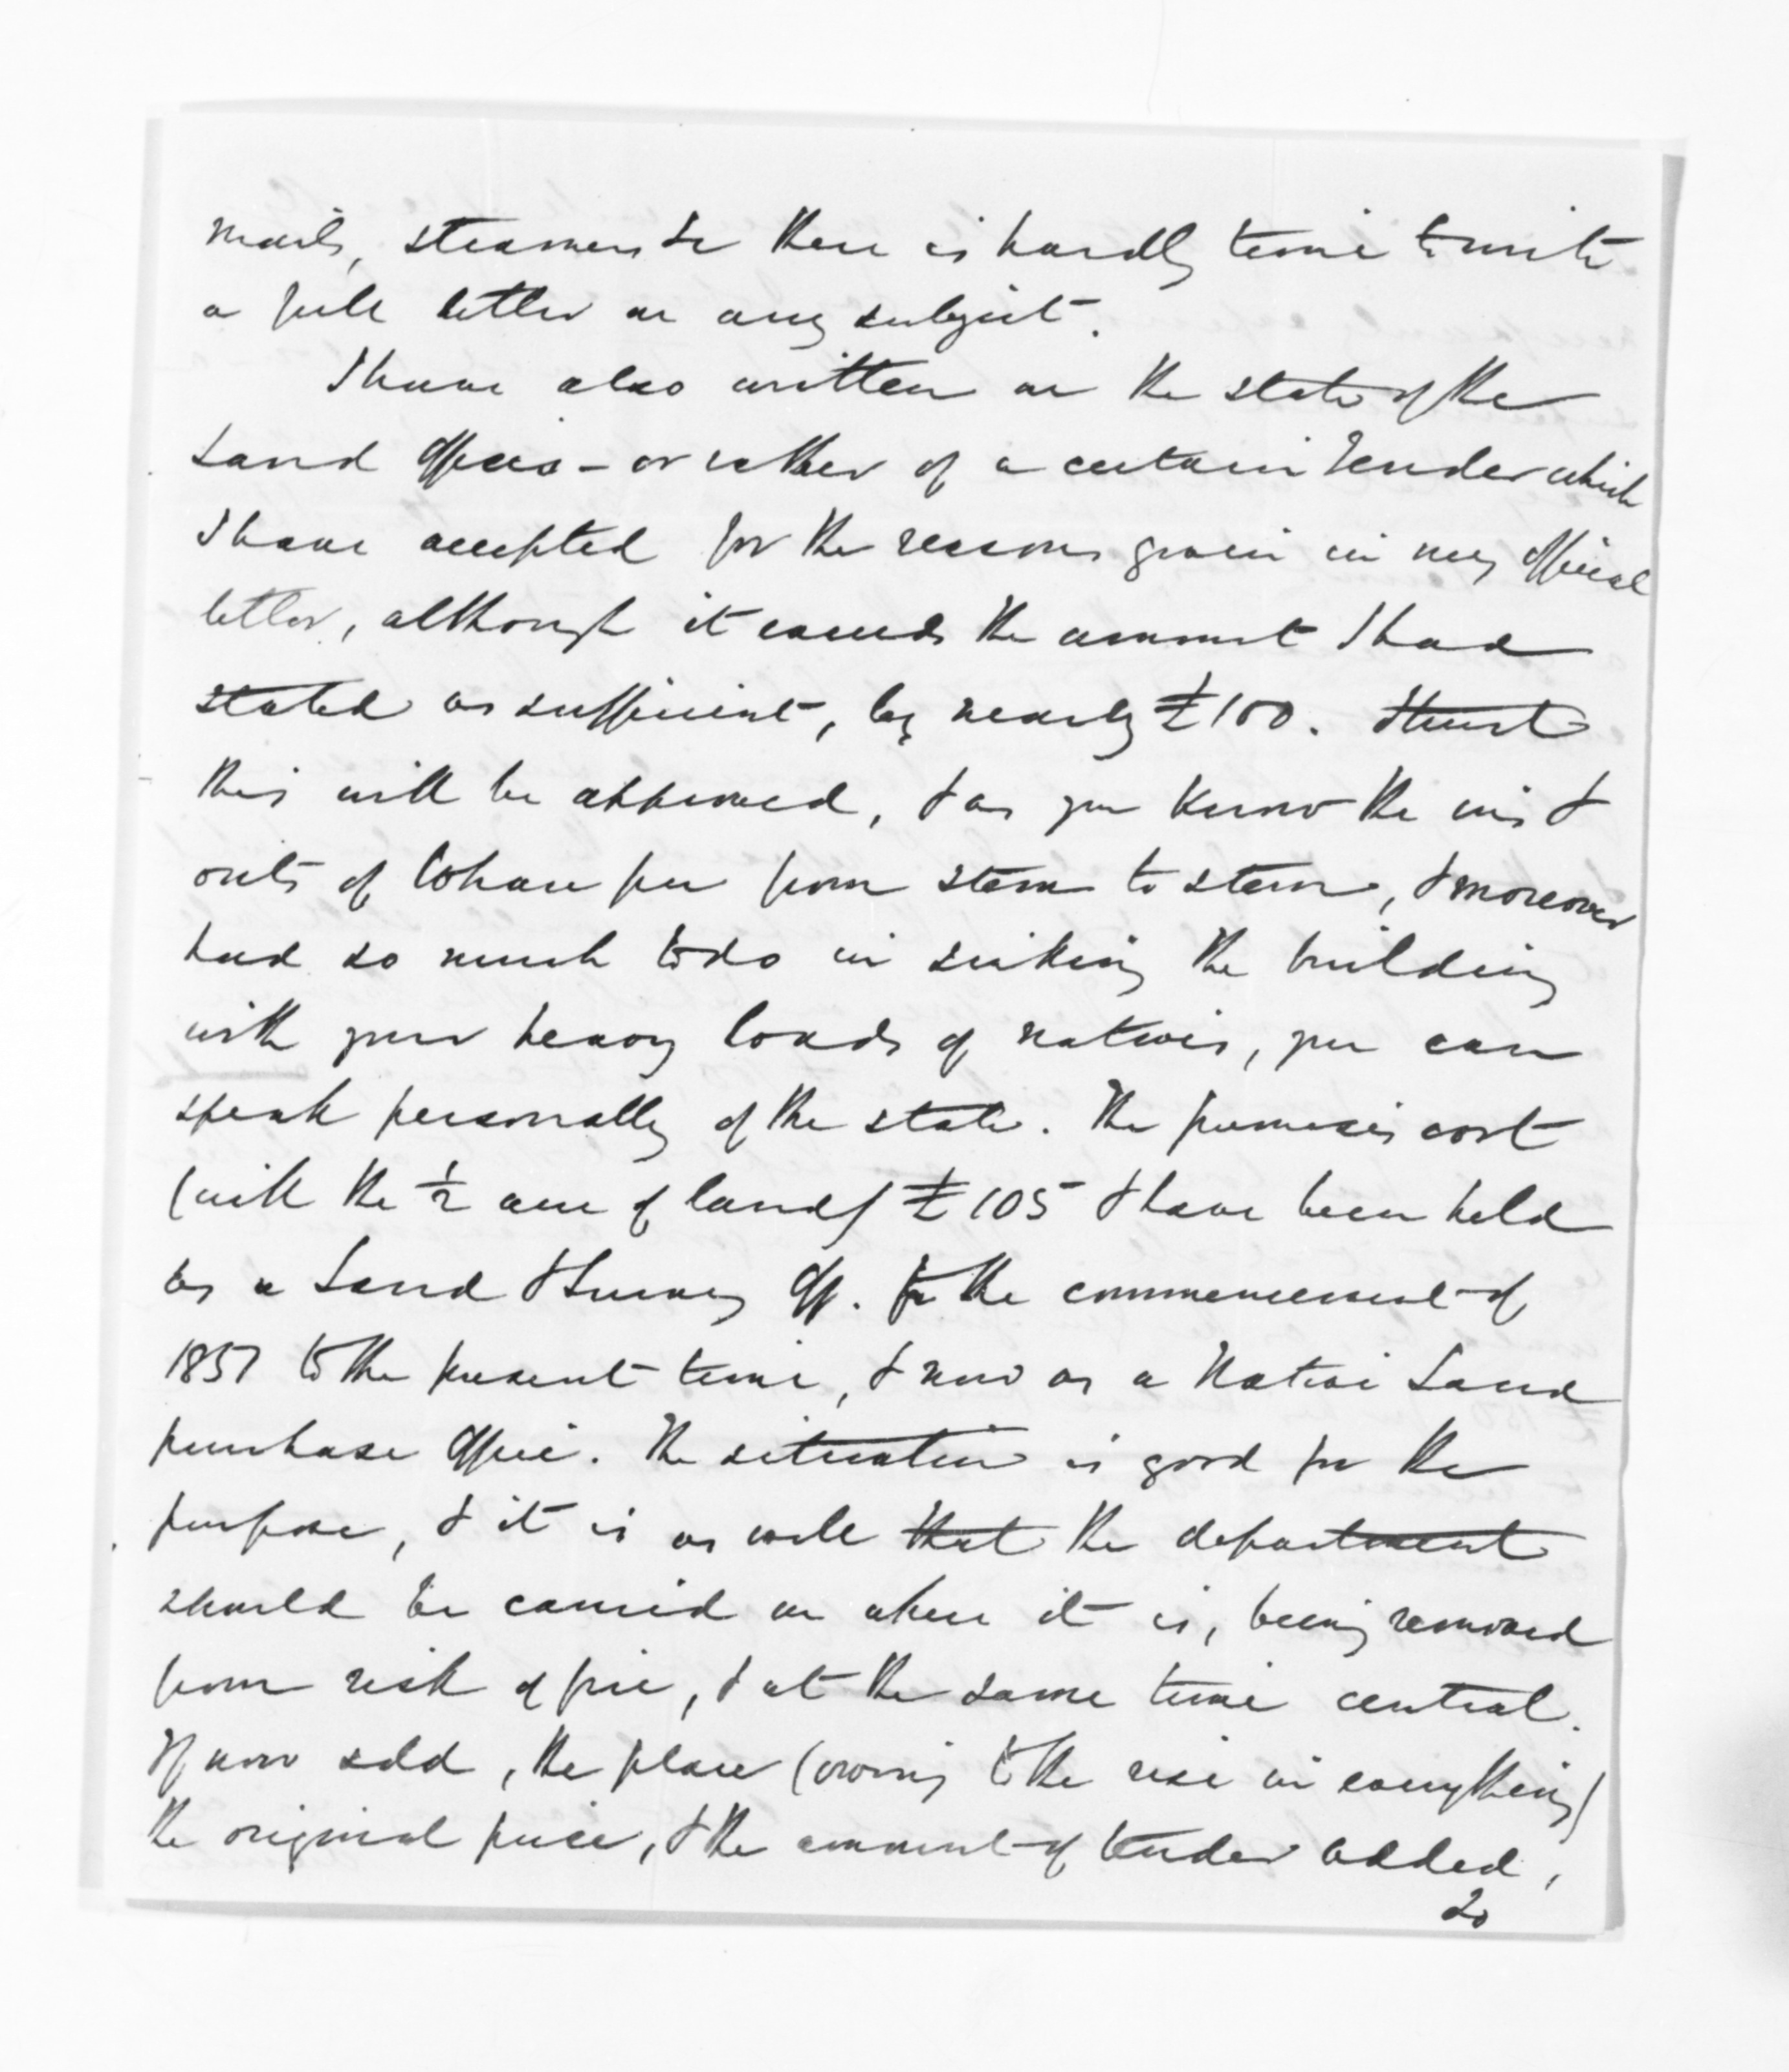 mails, steamers &c there is hardly time to write
a full letter on any subject.
I have also written on the state of the
Land Offices - or rather of a certain Tender which
I have accepted for the reasons given in my official
letter, although it exceeds the amount I had
stated as sufficient, by nearly £100. I trust
this will be approved, & as you know the ins &
outs of from stem to stern, & moreover
had so much to do in sinking the building
with your heavy loads of natives, you can
speak personally of the state. The premises cost
(with the ½ acre of land) £105 & have been held
as a Land & Survey Off. fr the commencement of
1857 to the present time, & now as a Native Land
purchase Office. The situation is good for the
purpose, & it is as well that the department
should be carried on where it is, being removed
from risk of fire, & at the same time central.
If now sold, the place (owing to the rise in everything)
the original price, & the amount of tender added,